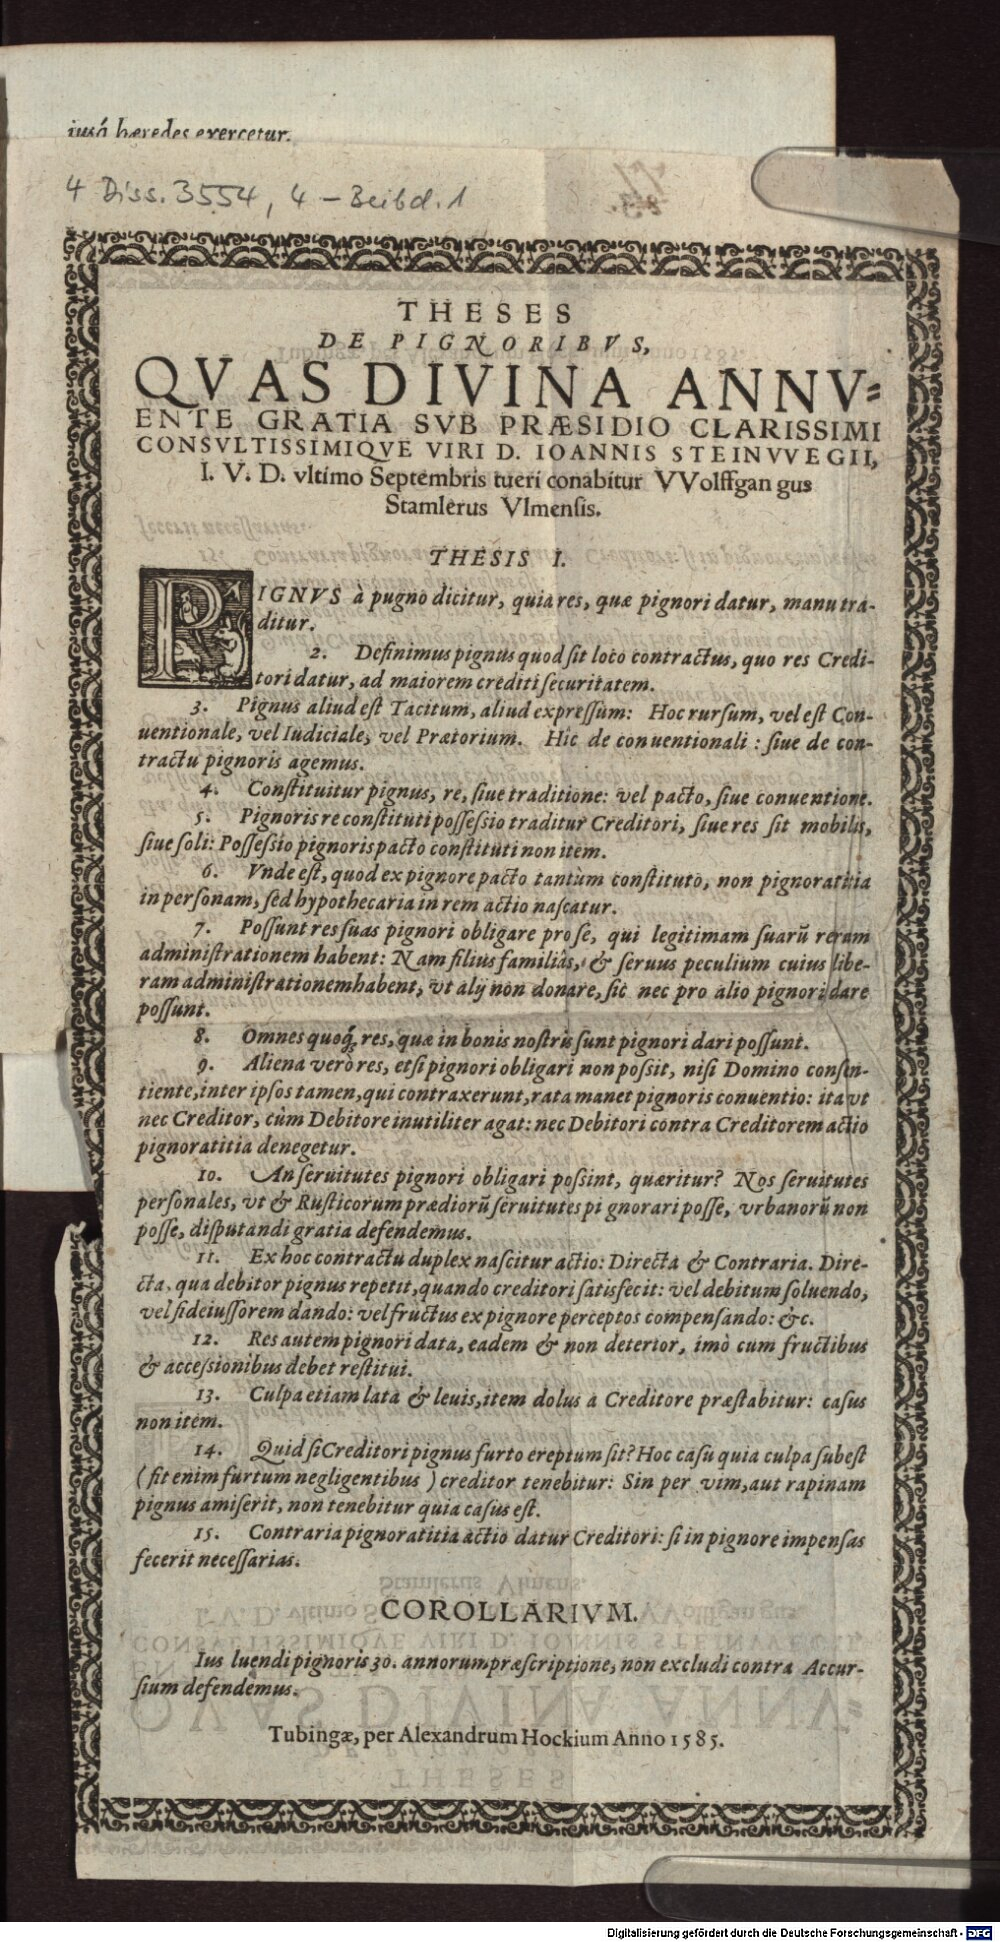 iusq́ hæredes exercetur.
4 Diss. 3554, 4 – Beibd. 1
THESES
DE PIGNORIBVS,
QVAS DIVINA ANNV=
ENTE GRATIA SVB PRÆSIDIO CLARISSIMI
CONSVLTISSIMIQVE VIRI D. IOANNIS STEINVVEGII,
I. V. D. vltimo Septembris tueri conabitur VVolffgan gus
Stamlerus Vlmensis.
THESIS I.
PIGNVS à pugno dicitur, quia res, quæ pignori datur, manu tra-
ditur.
2. Definimus pignus quod sit loco contractus, quo res Credi-
tori datur, ad maiorem crediti securitatem.
3. Pignus aliud est Tacitum, aliud expressum: Hoc rursum, vel est Con-
uentionale, vel Iudiciale, vel Prætorium. Hic de conuentionali: siue de con-
tractu pignoris agemus.
4. Constituitur pignus, re, siue traditione: vel pacto, siue conuentione.
5. Pignoris re constituti possessio traditur Creditori, siue res sit mobilis,
siue soli: Possessio pignoris pacto constituti non item.
6. Vnde est, quod ex pignore pacto tantùm constituto, non pignoratitia
in personam, sed hypothecaria in rem actio nascatur.
7. Possunt res suas pignori obligare pro se, qui legitimam suarū rerum
administrationem habent: Nam filius familiâs, & seruus peculium cuius libe-
ram administrationem habent, vt alij non donare, sic nec pro alio pignori dare
possunt.
8. Omnes quoq́; res, quæ in bonis nostris sunt pignori dari possunt.
9. Aliena verò res, etsi pignori obligari non possit, nisi Domino consen-
tiente, inter ipsos tamen, qui contraxerunt, rata manet pignoris conuentio: ita vt
nec Creditor, cùm Debitore inutiliter agat: nec Debitori contra Creditorem actio
pignoratitia denegetur.
10. An seruitutes pignori obligari possint, quæritur? Nos seruitutes
personales, vt & Rusticorum prædiorū seruitutes pi gnorari posse, vrbanorū non
posse, disputandi gratia defendemus.
11. Ex hoc contractu duplex nascitur actio: Directa & Contraria. Dire-
cta, qua debitor pignus repetit, quando creditori satisfecit: vel debitum soluendo,
vel fideiussorem dando: vel fructus ex pignore perceptos compensando: &c.
12. Res autem pignori data, eadem & non deterior, imò cum fructibus
& accessionibus debet restitui.
13. Culpa etiam lata & leuis, item dolus à Creditore præstabitur: casus
non item.
14. Quid si Creditori pignus furto ereptum sit? Hoc casu quia culpa subest
(fit enim furtum negligentibus) creditor tenebitur: Sin per vim, aut rapinam
pignus amiserit, non tenebitur quia casus est.
15. Contraria pignoratitia actio datur Creditori: si in pignore impensas
fecerit necessarias.
COROLLARIVM.
Ius luendi pignoris 30. annorum præscriptione, non excludi contra Accur-
sium defendemus.
Tubingæ, per Alexandrum Hockium Anno 1585.
Digitalisierung gefördert durch die Deutsche Forschungsgemeinschaft - DFG